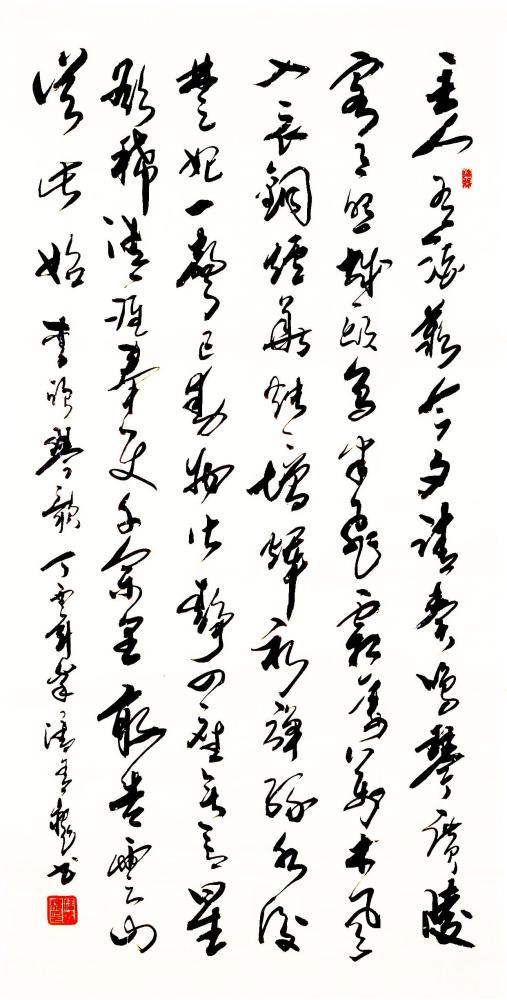 主人有酒歡今夕請奏鳴琴廣陵
客月照城頭烏半飛霜淒萬木風
入衣銅爐華燭燭增輝初彈淥水後
楚妃一聲已動物皆靜四座無言星
欲稀清淮奉使千餘里敢告雲山
從此始 李頎琴歌 書